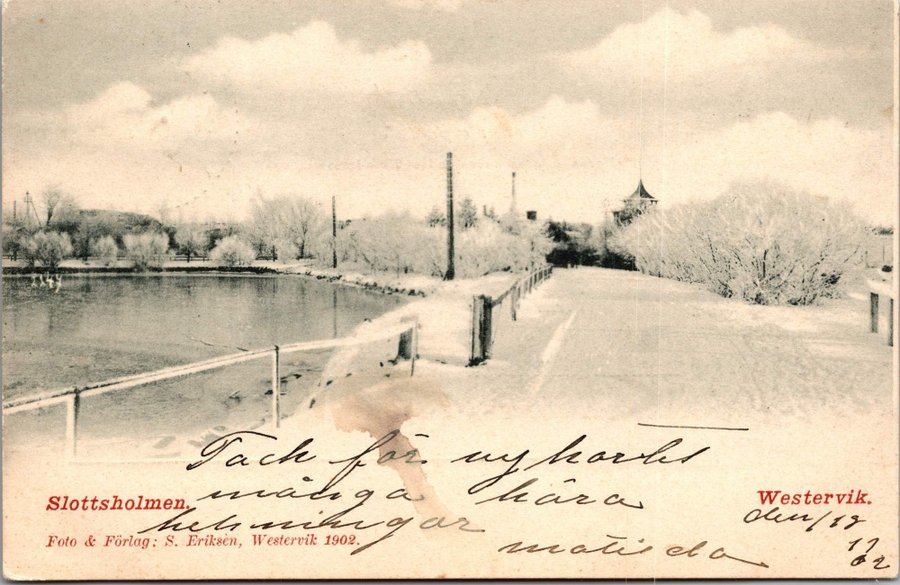 1144
Tack för nykortet
många kära
helsningar
matilda
Slottsholmen.
Foto & Förlag: S. Eriksèn, Westervik 1902.
Westervik.
den/12
12
02